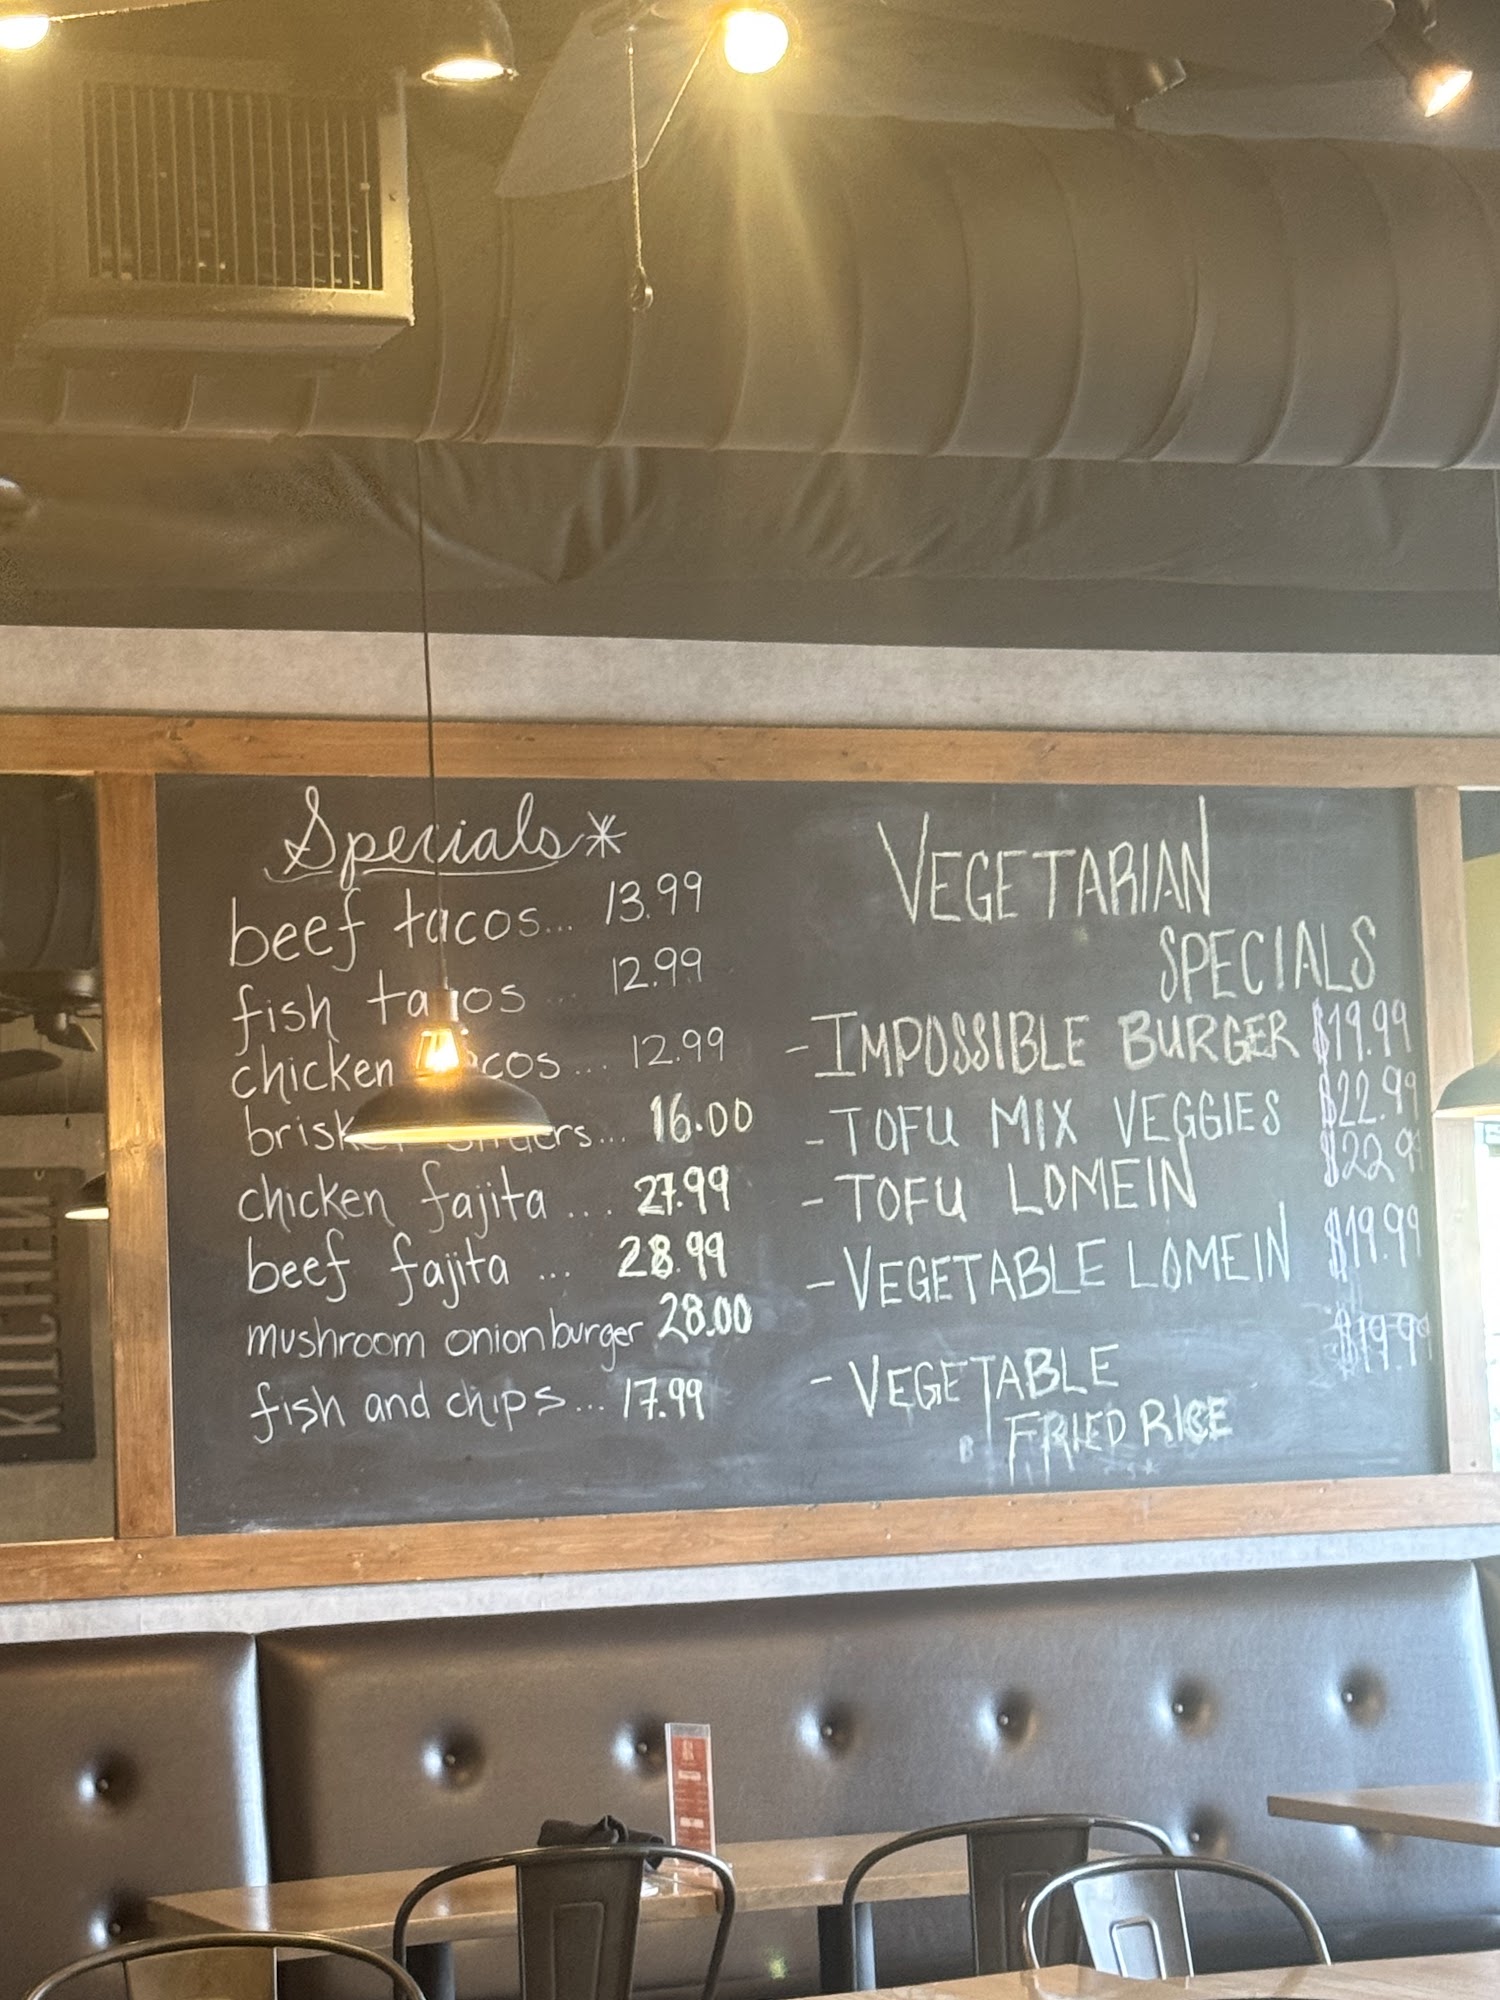 Specials*
beef tacos... 13.99
fish tacos ... 12.99
chicken tacos... 12.99
brisket sliders... 16.00
chicken fajita ... 27.99
beef fajita ... 28.99
mushroom onion burger 28.00
fish and chips... 17.99
VEGETARIAN
SPECIALS
- IMPOSSIBLE BURGER $19.99
- TOFU MIX VEGGIES $22.99
- TOFU LOMEIN $22.99
- VEGETABLE LOMEIN $19.99
- VEGETABLE $19.99
FRIED RICE
KITCHEN